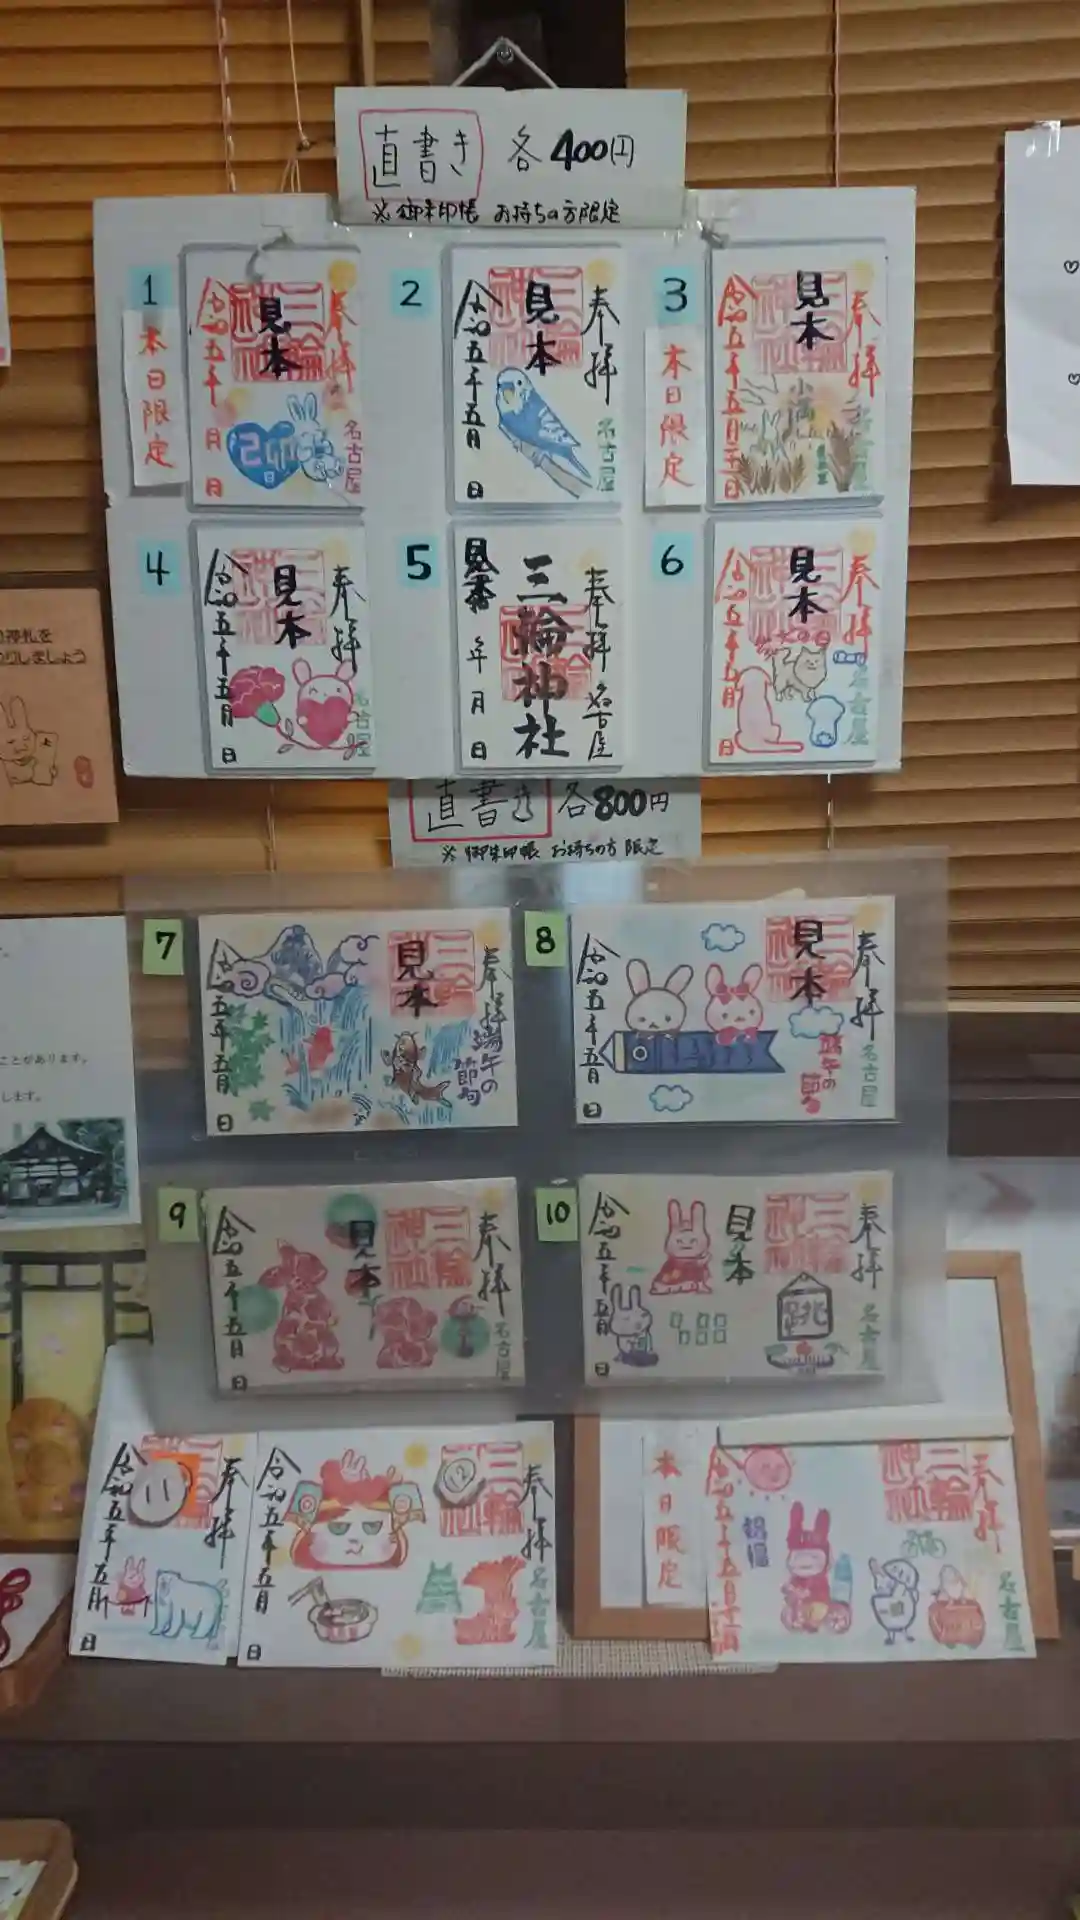 直書き 各400円
※御朱印帳 お持ちの方限定
1
本日限定
奉拝
三輪神社
見本
令和五年 月 日
名古屋
2
奉拝
三輪神社
見本
令和五年五月 日
名古屋
3
本日限定
奉拝
三輪神社
見本
小満
名古屋
4
奉拝
三輪神社
見本
令和五年五月 日
名古屋
5
奉拝
三輪神社
名古屋
年 月 日
6
奉拝
三輪神社
見本
令和五年五月 日
名古屋
直書き 各800円
※御朱印帳 お持ちの方限定
7
奉拝
三輪神社
見本
端午の節句
令和五年五月 日
8
奉拝
三輪神社
見本
端午の節句
名古屋
令和五年五月 日
9
奉拝
三輪神社
見本
名古屋
令和五年五月 日
10
奉拝
三輪神社
見本
跳
名古屋
令和五年五月 日
11
奉拝
令和五年五月 日
12
奉拝
三輪神社
名古屋
令和五年五月 日
本日限定
奉拝
三輪神社
名古屋
ことがあります。
します。